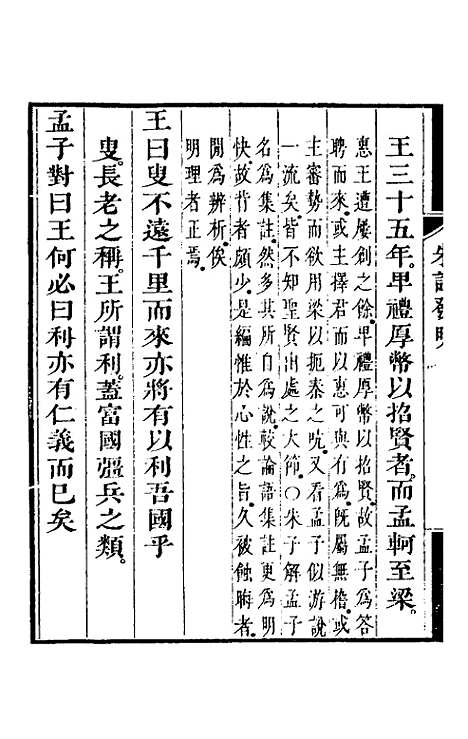 王三十五年。卑禮厚幣以招賢者。而孟軻至梁。
惠王遭屢創之餘。卑禮厚幣以招賢。故孟子爲答
聘而來。或主擇君而以惠可與有爲。旣屬無稽。或
主審勢而欲用梁以扼秦之吭。又看孟子似游說
一流矣。皆不知聖賢出處之大節。○朱子解孟子
名爲集註。然多其所自爲說。較論語集註更爲明
快。故背者頗少。是編惟於心性之旨。久被蝕晦者。
閒爲辨析。俟
明理者正焉。
王曰叟不遠千里而來亦將有以利吾國乎
叟。長老之稱。王所謂利。蓋富國彊兵之類。
孟子對曰王何必曰利亦有仁義而已矣